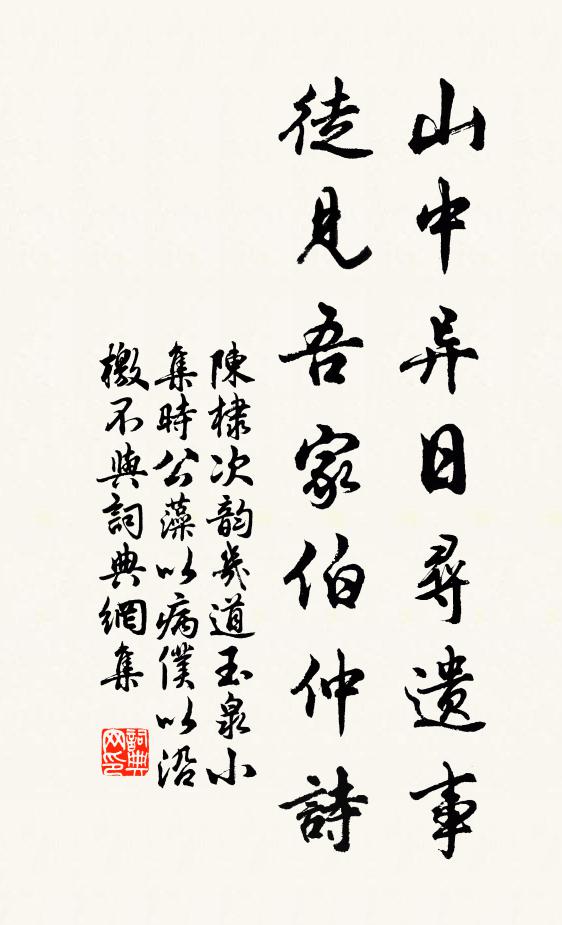 山中异日尋遺事
徒見吾家伯仲詩
陳棣次韵幾道玉泉小
集時公藻以病僕以沿
檄不與詞典網集
詞典
网印